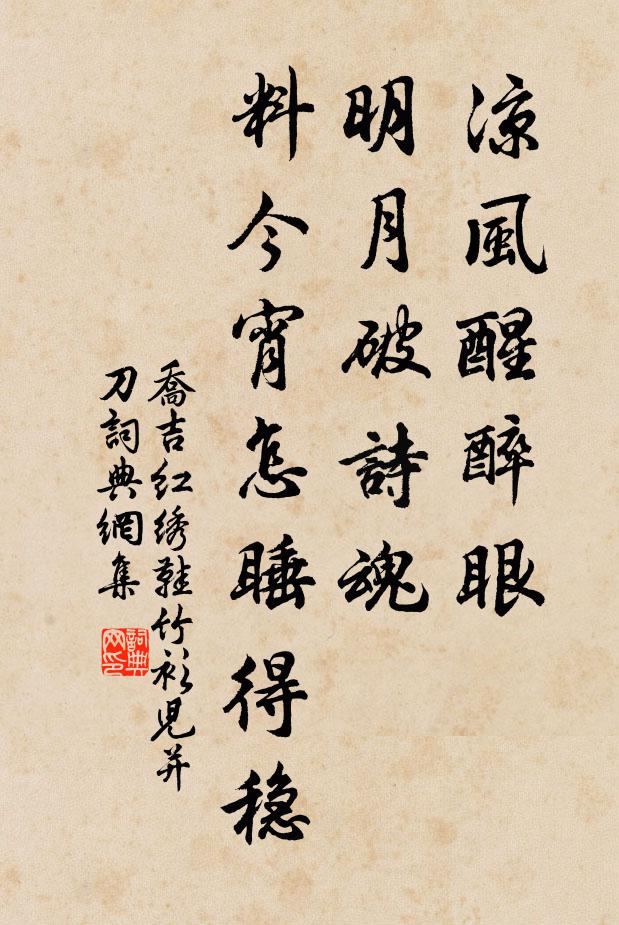 涼風醒醉眼
明月破詩魂
料今宵怎睡得穏
喬吉红绣鞋竹衫児并
刀詞典網集
詞典
网印